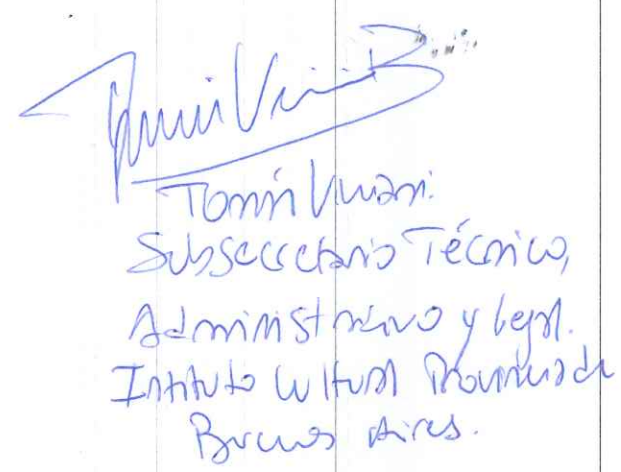 Tomás Viviani.
Subsecretario Técnico,
Administrativo y legal.
Instituto Cultural Provincia de
Buenos Aires.